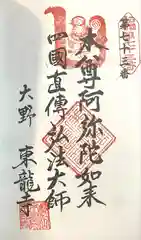 第七十三番
本尊阿弥陀如来
四國直傳弘法大師
大野
東龍寺